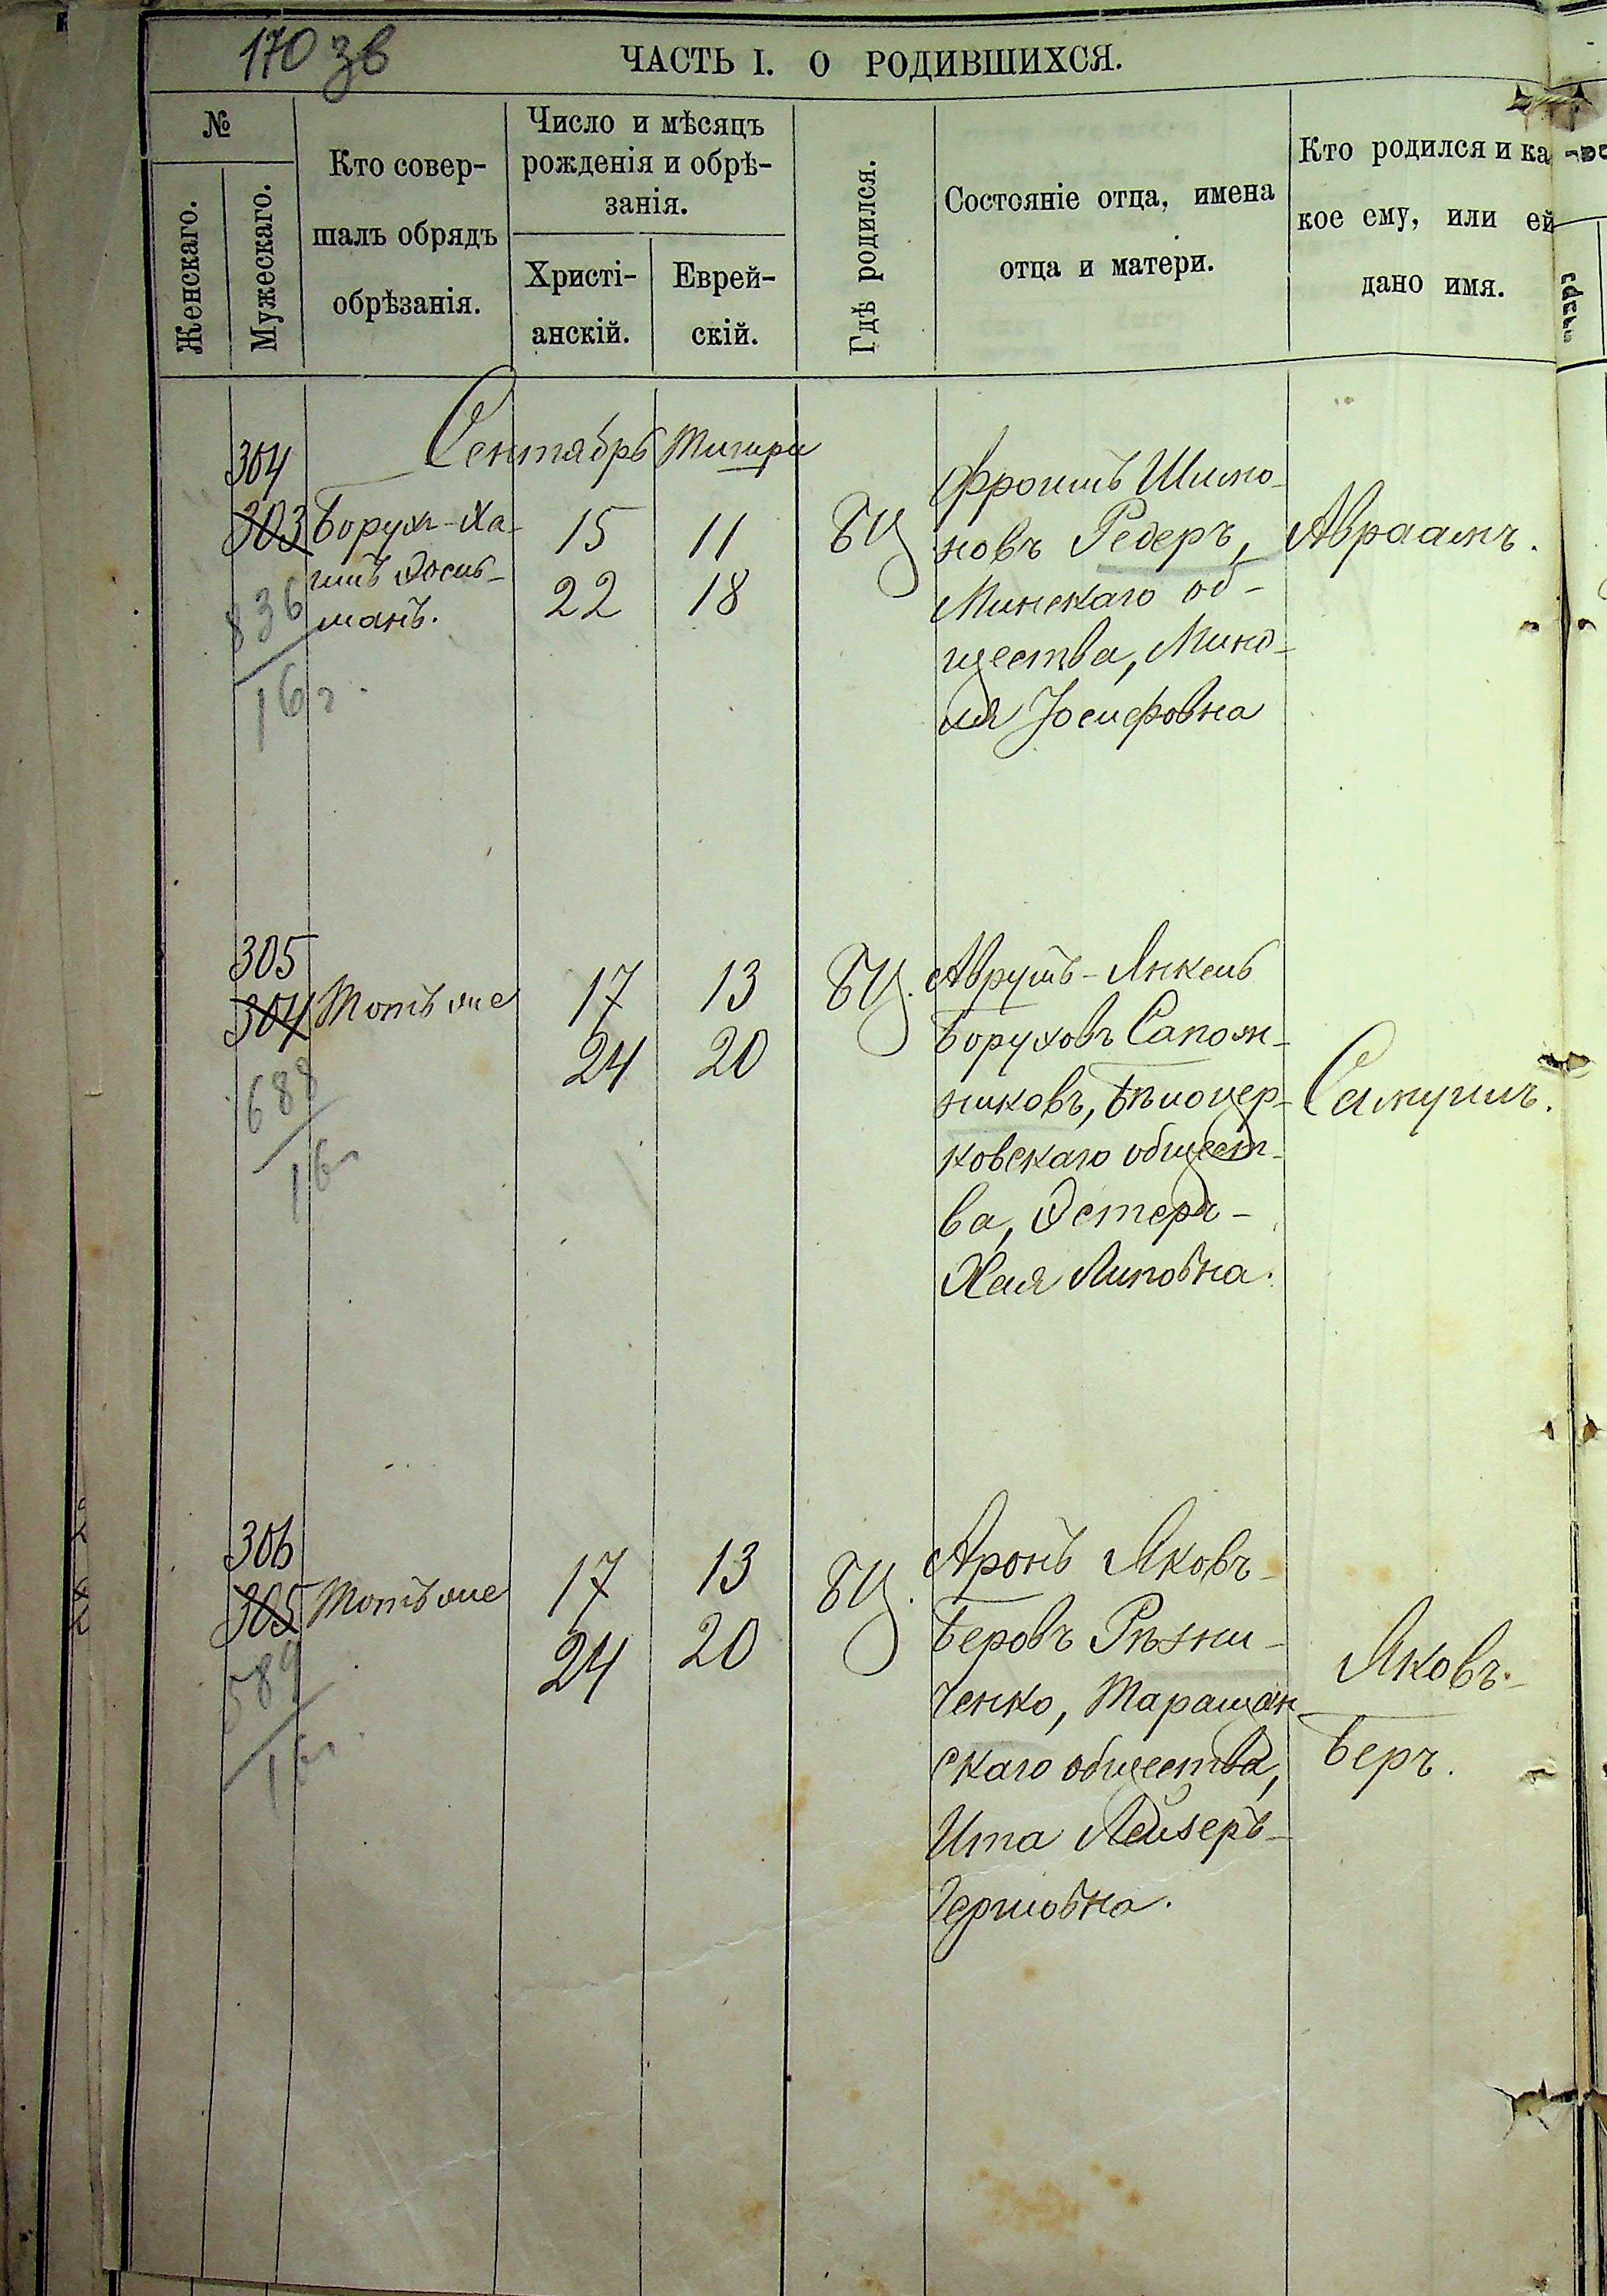 170 зв
ЧАСТЬ I. О РОДИВШИХСЯ.
№
Женскаго.
Мужескаго.
Кто совер-
шалъ обрядъ
обрѣзанія.
Число и мѣсяцъ
рожденія и обрѣ-
занія.
Христі-
анскій.
Еврей-
скій.
Гдѣ родился.
Состояніе отца, имена
отца и матери.
Кто родился и ка
кое ему, или ей
дано имя.
Сентябрь Тишри
304
303
836
16 г.
Борухъ-Ха-
имъ
манъ.
15 11
22 18
БЦ
Фроимъ Шимо-
новъ Редеръ,
Минскаго об-
щества, Минд-
ля Іосифовна
Авраамъ.
305
304
688
16 г
Тотъ же
17 13
24 20
БЦ.
Аврумъ-Янкель
Боруховъ Сапож-
никовъ, Бѣлоцер-
ковскаго общест-
ва, Эстеръ-
Хая Липовна.
Самуилъ.
306
305
589
16 г.
Тотъ же
17 13
24 20
БЦ.
Аронъ Яковъ-
Беровъ Рѣзни-
ченко, Таращан
скаго общества,
Ита Лейзеръ-
Гершовна.
Яковъ-
Беръ.